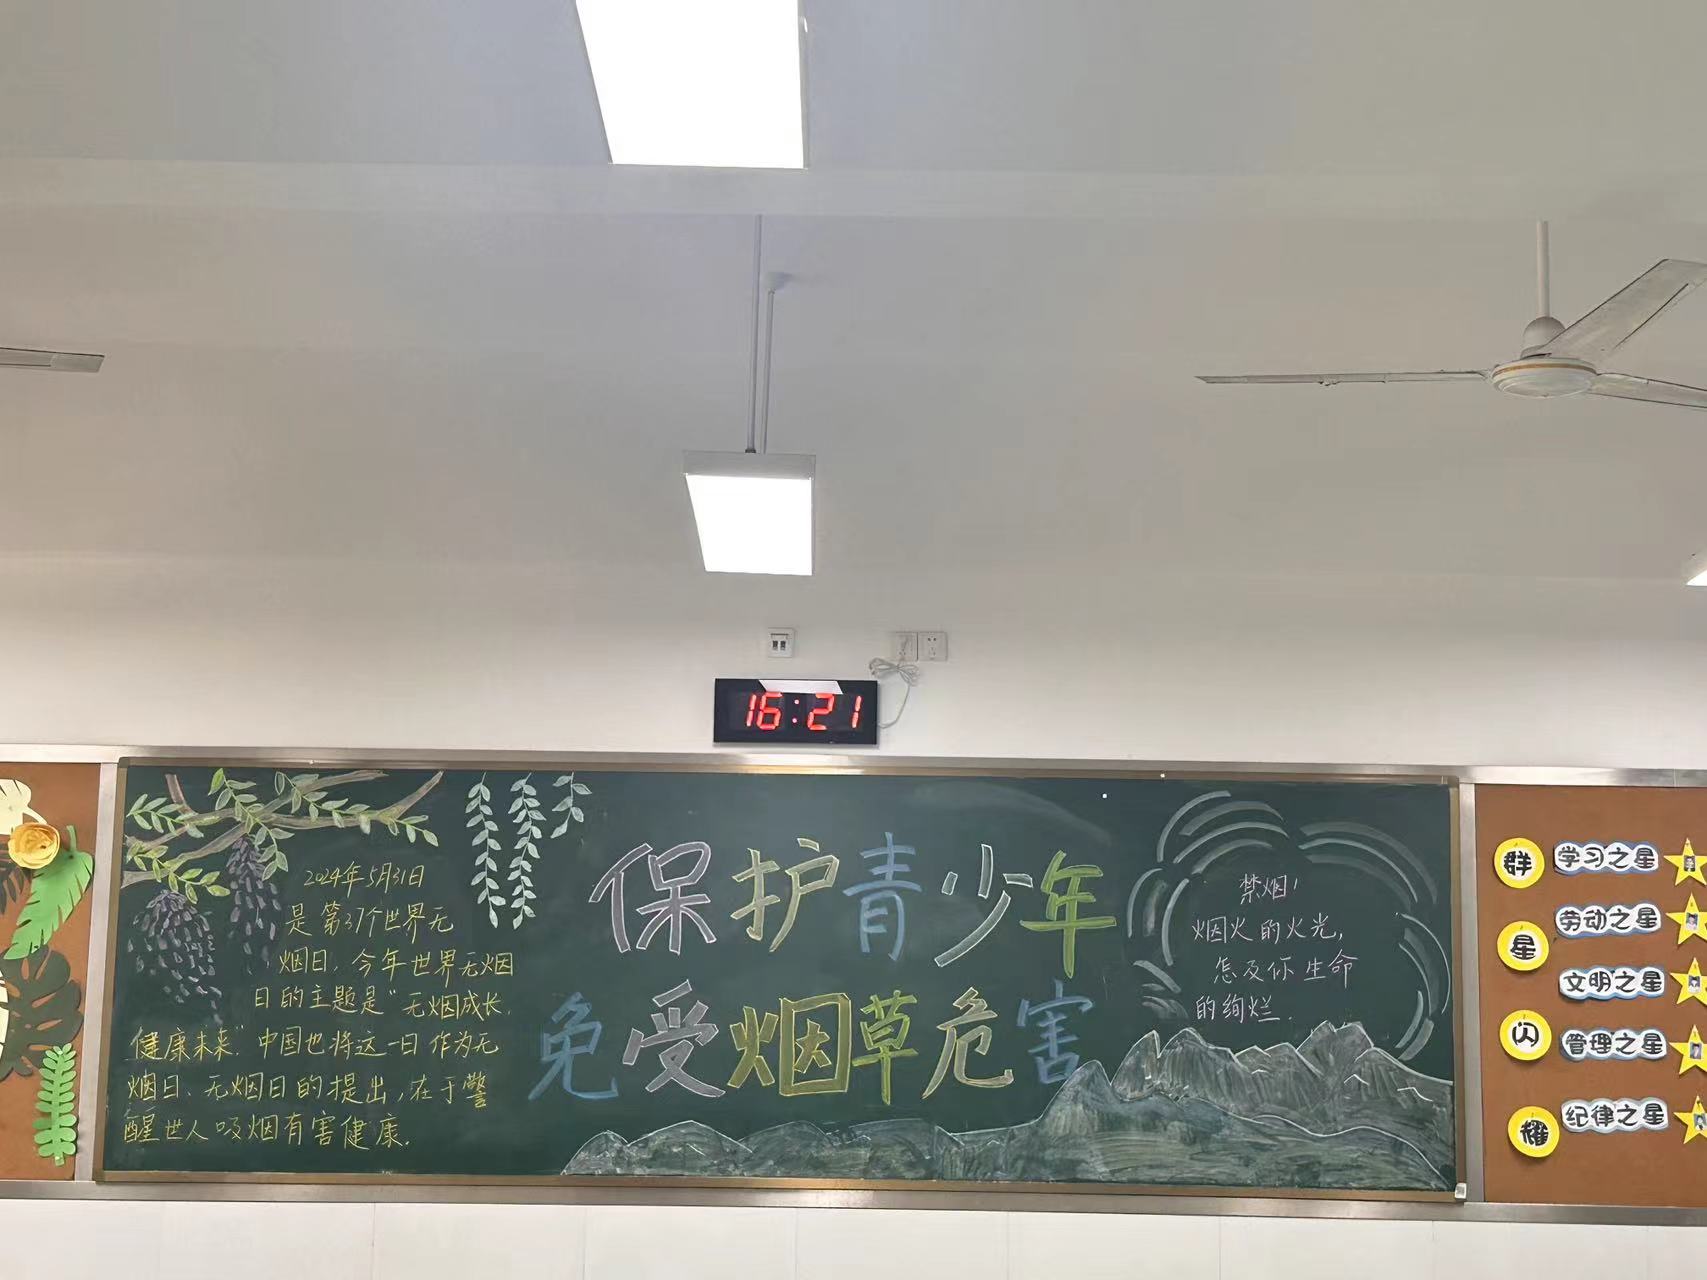 16:21
2024年5月31日
是第37个世界无
烟日，今年世界无烟
日的主题是“无烟成长，
健康未来”中国也将这一日作为无
烟日、无烟日的提出，在于警
醒世人吸烟有害健康.
保护青少年
免受烟草危害
禁烟！
烟火的火光，
怎及你生命
的绚烂.
群星闪耀
学习之星
劳动之星
文明之星
管理之星
纪律之星